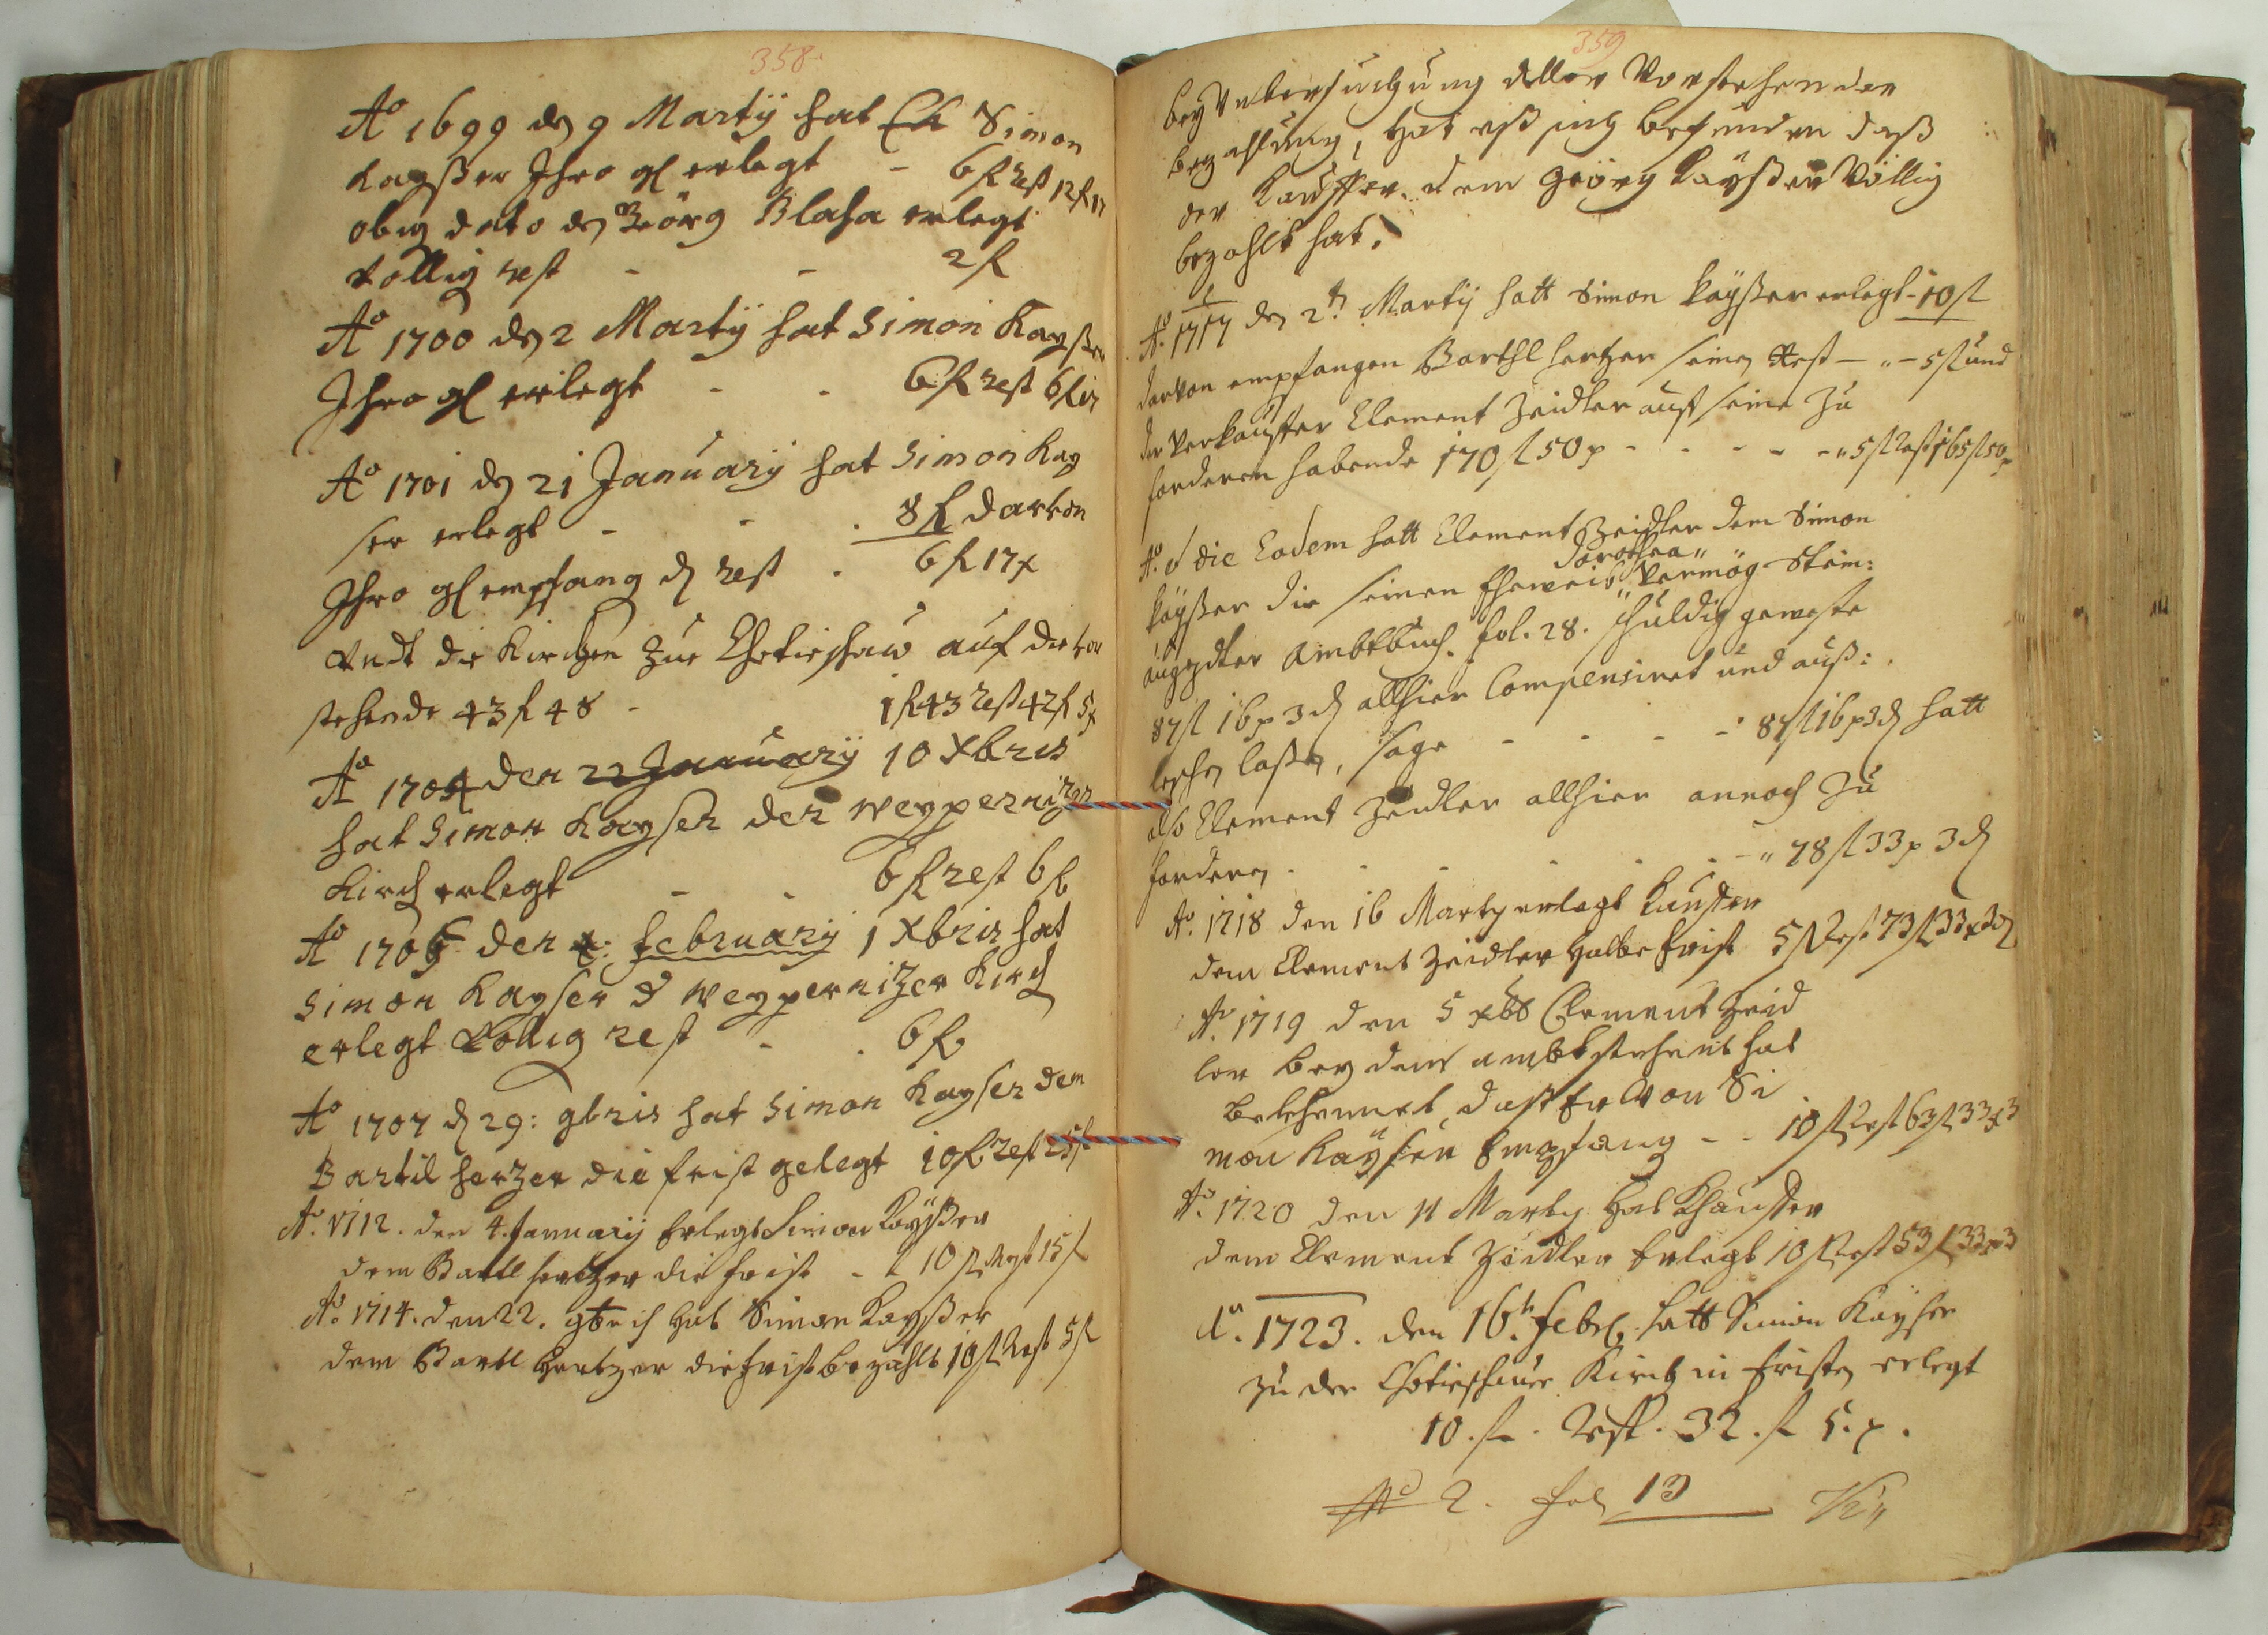 358.
Ao 1699 den 9 Martÿ hat Simon
Kaysser Ihro gl erlegt - 6 fl rest 12 fl 17
obig dato den Geörg Blaha erlegt
vollig rest - - 2 fl
Ao 1700 den 2 Martÿ hat Simon Kaysser
Ihro gl erlegt - - 6 fl rest 6 fl 17
Ao 1701 den 21 Januarÿ hat Simon Kaÿ
ser erlegt - - . 8 fl darvon
Ihro gl empfang d rest . 6 fl 17 x
Undt die Kirchen zue Chotieschaw auf die vor
stehende 43 fl 48 - 1 fl 43 rest 42 fl 5 x
Ao 1704 den 22 Januarÿ 10 Xbris
hat Simon Kayser der Weypernizer
Kirch erlegt - - 6 fl rest 6 fl
Ao 1705 den february 1 Xbris hat
Simon Kayser d Weypernizer Kirch
erlegt Vollig rest - . 6 fl
Ao 1707 d 29: 9bris hat Simon Kayser dem
Bartil herzer die frist gelegt 10 fl rest 25 fl
Ao. 1712. den 4. Januarÿ Erlegt Simon Kaÿßer
dem Bartl hertzer die frist - 10 fl Rest 15 fl
Ao. 1714. den 22. 9bris Hat Simon Kayßer
dem Bartl Hertzer die frist bezahlt 10 fl Rest 5 fl
359
bey Untersuchung aller Vorstehender
bezahlung, Hat eß sich befunden daß
der Kauffer dem Geörg Kaÿßer Völlig
bezahlt hat.
Ao. 1717 den 2t. Martÿ hatt Simon Kaÿßer erlegt - 10 fl
darvon empfangen Barthl hertzer seinen Rest - " - 5 fl und
der Verkauffer Clement Zeidler auf seine Zu
forderen habende 170 fl 50 x - - - - - " 5 fl Rest 165 fl 50 x
Ao. et die Eodem hatt Clement Zeidler dem Simon
Dorothea "
Kaÿßer die seinen Eheweib " Vermög
Ambtbuch. fol. 28. schuldig geweste
87 fl 16 x 3 d allhier Compensiret und auß:
leschen lassen, sage - - - - : 87 fl 16 x 3 d hatt
also Clement Zeidler allhier annoch Zu
forderen . . - - . - " 78 fl 33 x 3 d
Ao. 1718 den 16 Marty erlegt Kauffer
dem Clement Zeidler Halbe frist 5 fl Rest 73 fl 33 x 3 d
Ao. 1719 den 5 xbr Clement Zeid
ler bey dem ambt stehent hat
bekhennet, daß Er Von Si
mon Kaÿser Empfang - - 10 fl Rest 63 fl 33 x 3
Ao. 1720 den 11 Marty Hat Khauffer
dem Clement Zeidler Erlegt 10 fl Rest 53 fl 33 x 3
Ao. 1723. den 16t. Febr. hatt Simon Kaÿser
zu der Chotieschauer Kirch in fristen erlegt
10. fl. Rest. 32. fl 5. x.
No 2. fol 13